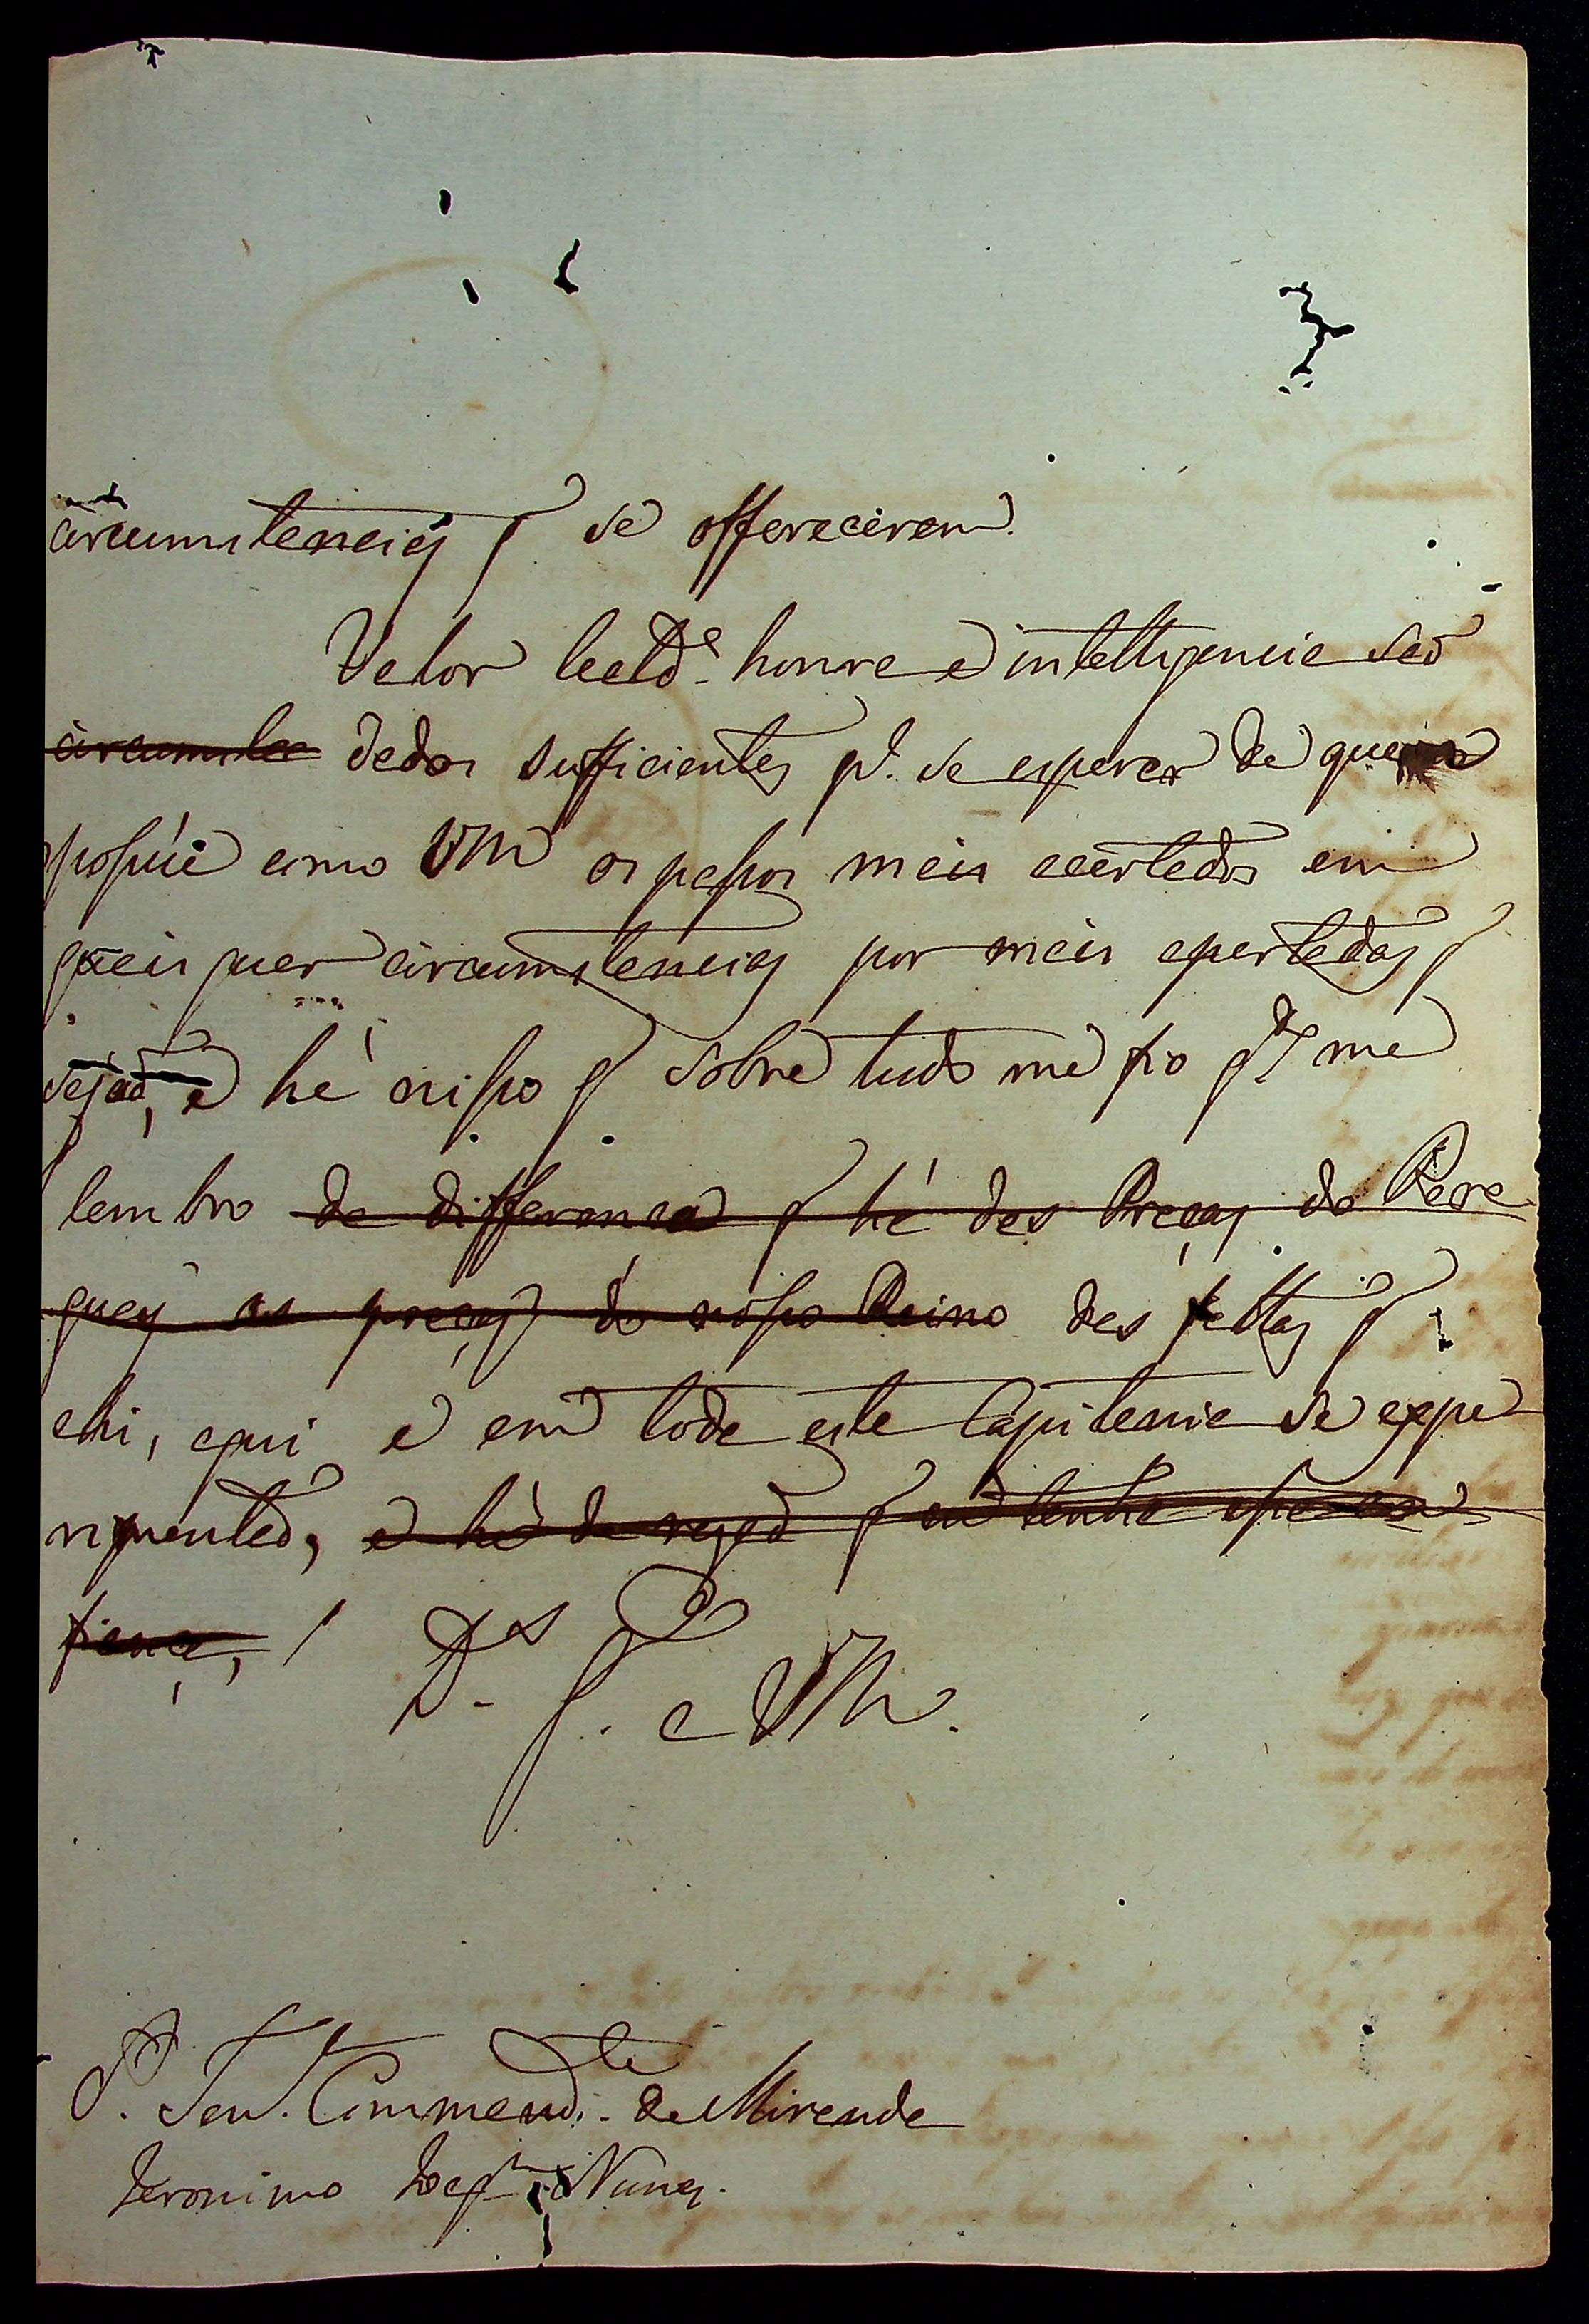 circumstancias q̃ se offerecerem.
Valor leald.e honra e intelligencia saõ
circumstan dados sufficientes p.ª se esperar de quem
possúe como VM os passos mais acertados em
quaes quer circumstancias por mais apertadas q̃
sejaõ, e hé nisso q̃ sobre tudo me fio q.do me
lembro da differença q̃ hé das Praças do Para
guay as praças do nosso Reino das faltas q̃
ahi, aqui e em toda esta Capitania se expe
rimentaõ, e hé da rezaõ q̃ eu tenha
fiança, / D.s G. a VM.
S. Ten. Commend.te de Miranda
Jeronimo Nunes.